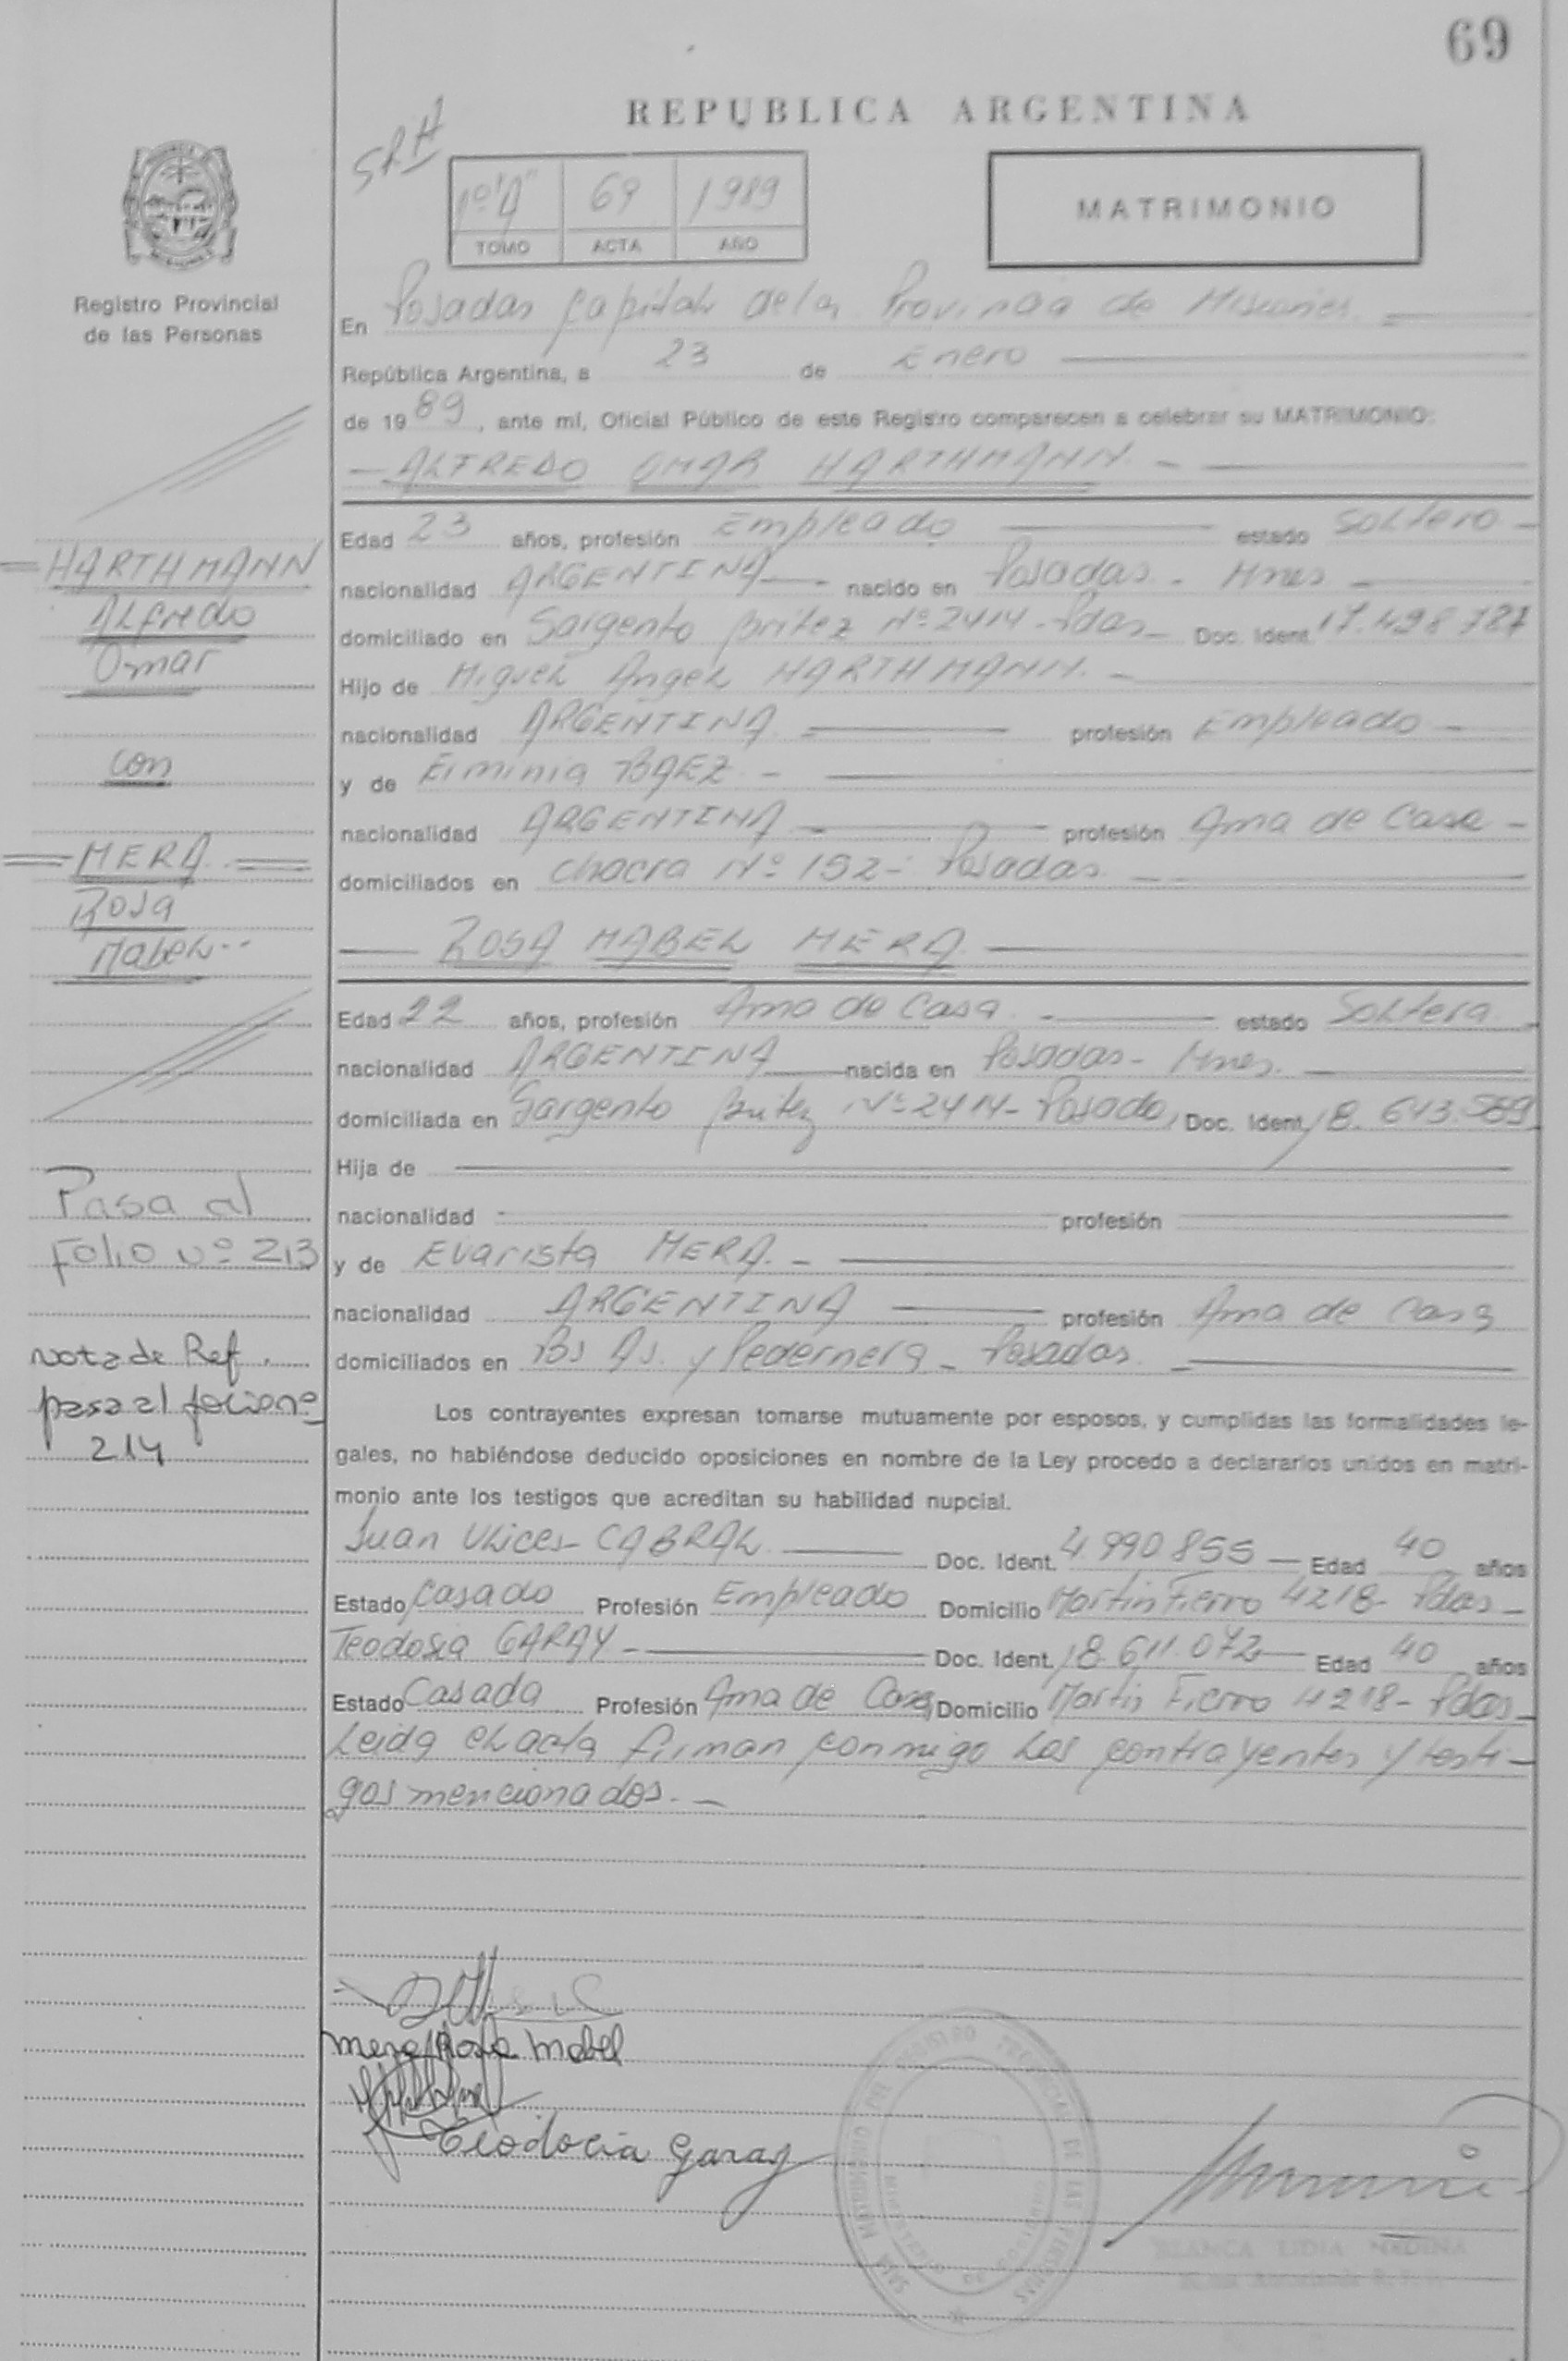 69
REPUBLICA ARGENTINA
1º "A" 69 1989
TOMO ACTA AÑO
MATRIMONIO
Registro Provincial
de las Personas
En Posadas Capital de la Provincia de Misiones.
República Argentina, a 23 de Enero
de 1989, ante mí, Oficial Público de este Registro comparecen a celebrar su MATRIMONIO:
— ALFREDO OMAR HARTHMANN. —
Edad 23 años, profesión Empleado estado Soltero -
nacionalidad ARGENTINA nacido en Posadas - Mnes
domiciliado en Sargento Britez Nº 2414 - Pdas Doc. Ident. 17.498.787
Hijo de Miguel Angel HARTHMANN. -
nacionalidad ARGENTINA profesión Empleado -
y de Erminia BAEZ -
nacionalidad ARGENTINA profesión Ama de Casa -
domiciliados en Chacra Nº 152 - Posadas
— ROSA MABEL MERA —
Edad 22 años, profesión Ama de Casa estado Soltera
nacionalidad ARGENTINA nacida en Posadas - Mnes.
domiciliada en Sargento Britez Nº 2414 - Posadas, Doc. Ident. 18.643.589
Hija de
nacionalidad profesión
y de Evarista MERA. -
nacionalidad ARGENTINA profesión Ama de Casa
domiciliados en Bs As. y Pedernera - Posadas
Los contrayentes expresan tomarse mutuamente por esposos, y cumplidas las formalidades le-
gales, no habiéndose deducido oposiciones en nombre de la Ley procedo a declararlos unidos en matri-
monio ante los testigos que acreditan su habilidad nupcial.
Juan Ulices CABRAL Doc. Ident. 4.990.855 — Edad 40 años
Estado Casado Profesión Empleado Domicilio Martin Fierro 4218 - Pdas -
Teodosia GARAY - Doc. Ident. 18.611.072 Edad 40 años
Estado Casada Profesión Ama de Casa Domicilio Martin Fierro 4218 - Pdas
Leida el acta firman conmigo los contrayentes y testi-
gos mencionados. -
HARTHMANN
Alfredo
Omar
con
MERA
Rosa
Mabel
Pasa al
Folio nº 213
Nota de Ref.
pasa al folio nº
214
Mera Rosa Mabel
Teodocia Garay
BLANCA LIDIA MEDINA